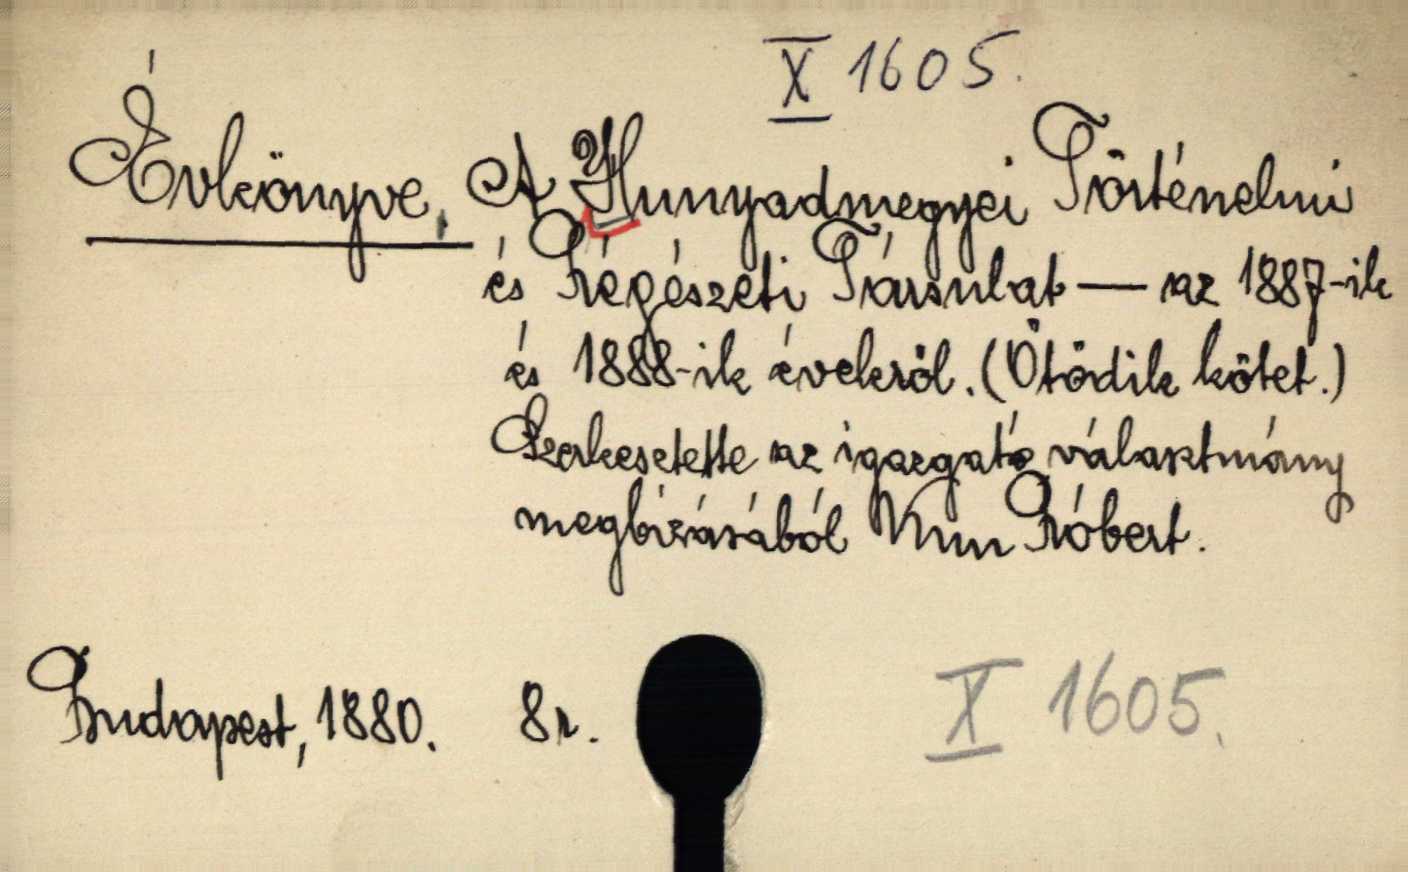 X 1605.
Évkönyve, A Hunyadmegyei Történelmi
és Régészeti Társulat — az 1887-ik
és 1888-ik évekről. (Ötödik kötet.)
Szerkesztette az igazgató választmány
megbízásából Kun Róbert.
Budapest, 1880. 8r. X 1605.